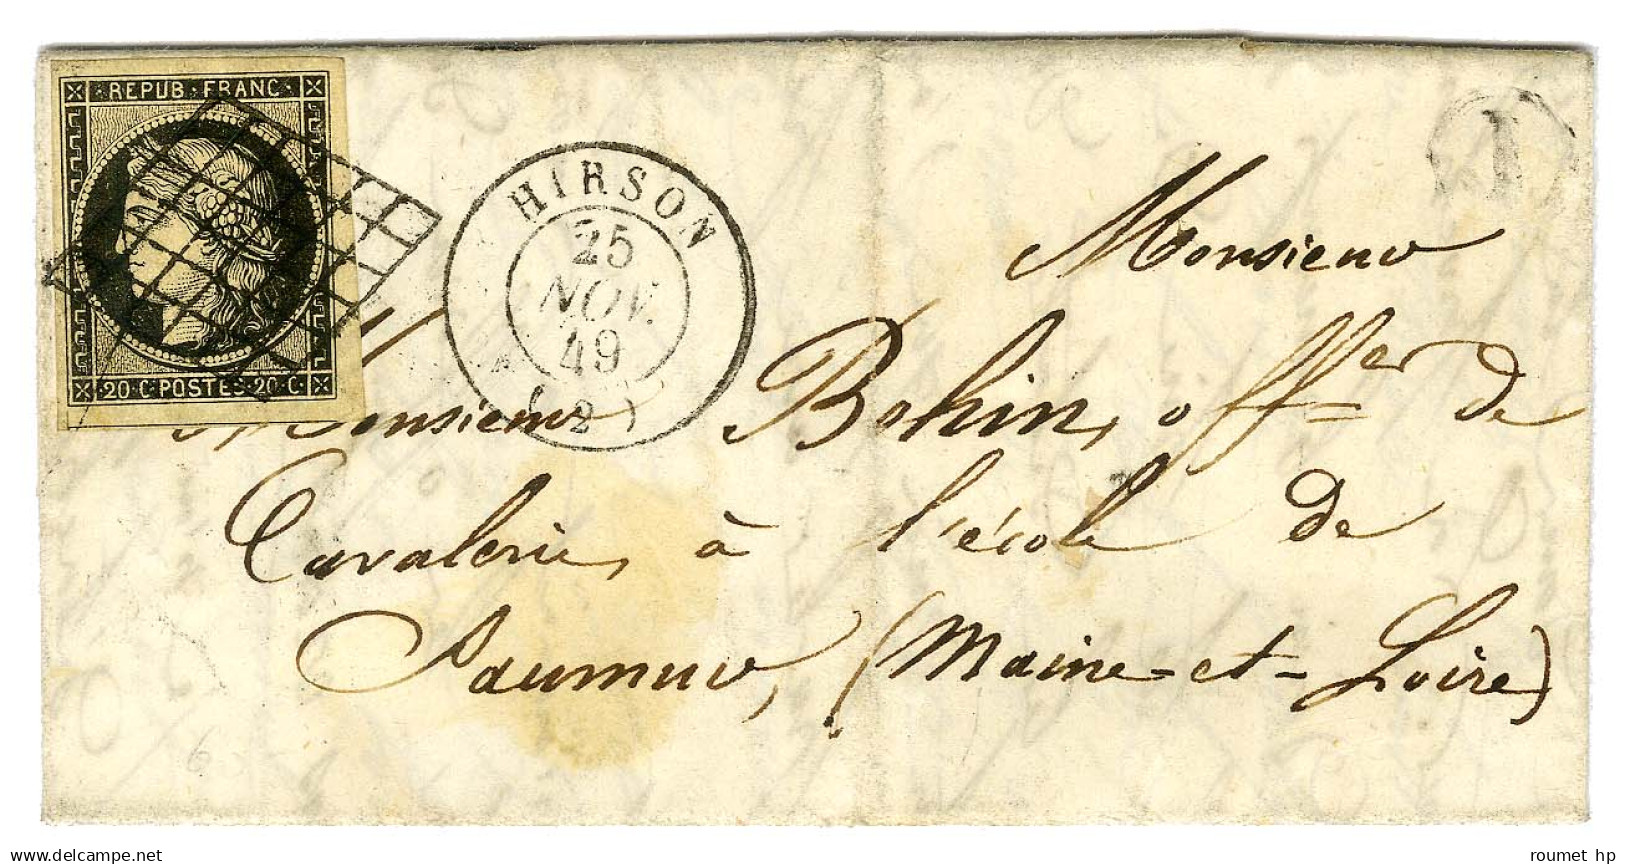 REPUB·FRANC·
20·C·POSTES·20·C·
HIRSON
25
NOV.
49
(2)
Monsieur
Monsieur Bohin, offer de
Cavalerie, à l'école de
Saumur, (Maine-et-Loire)
roumet hp